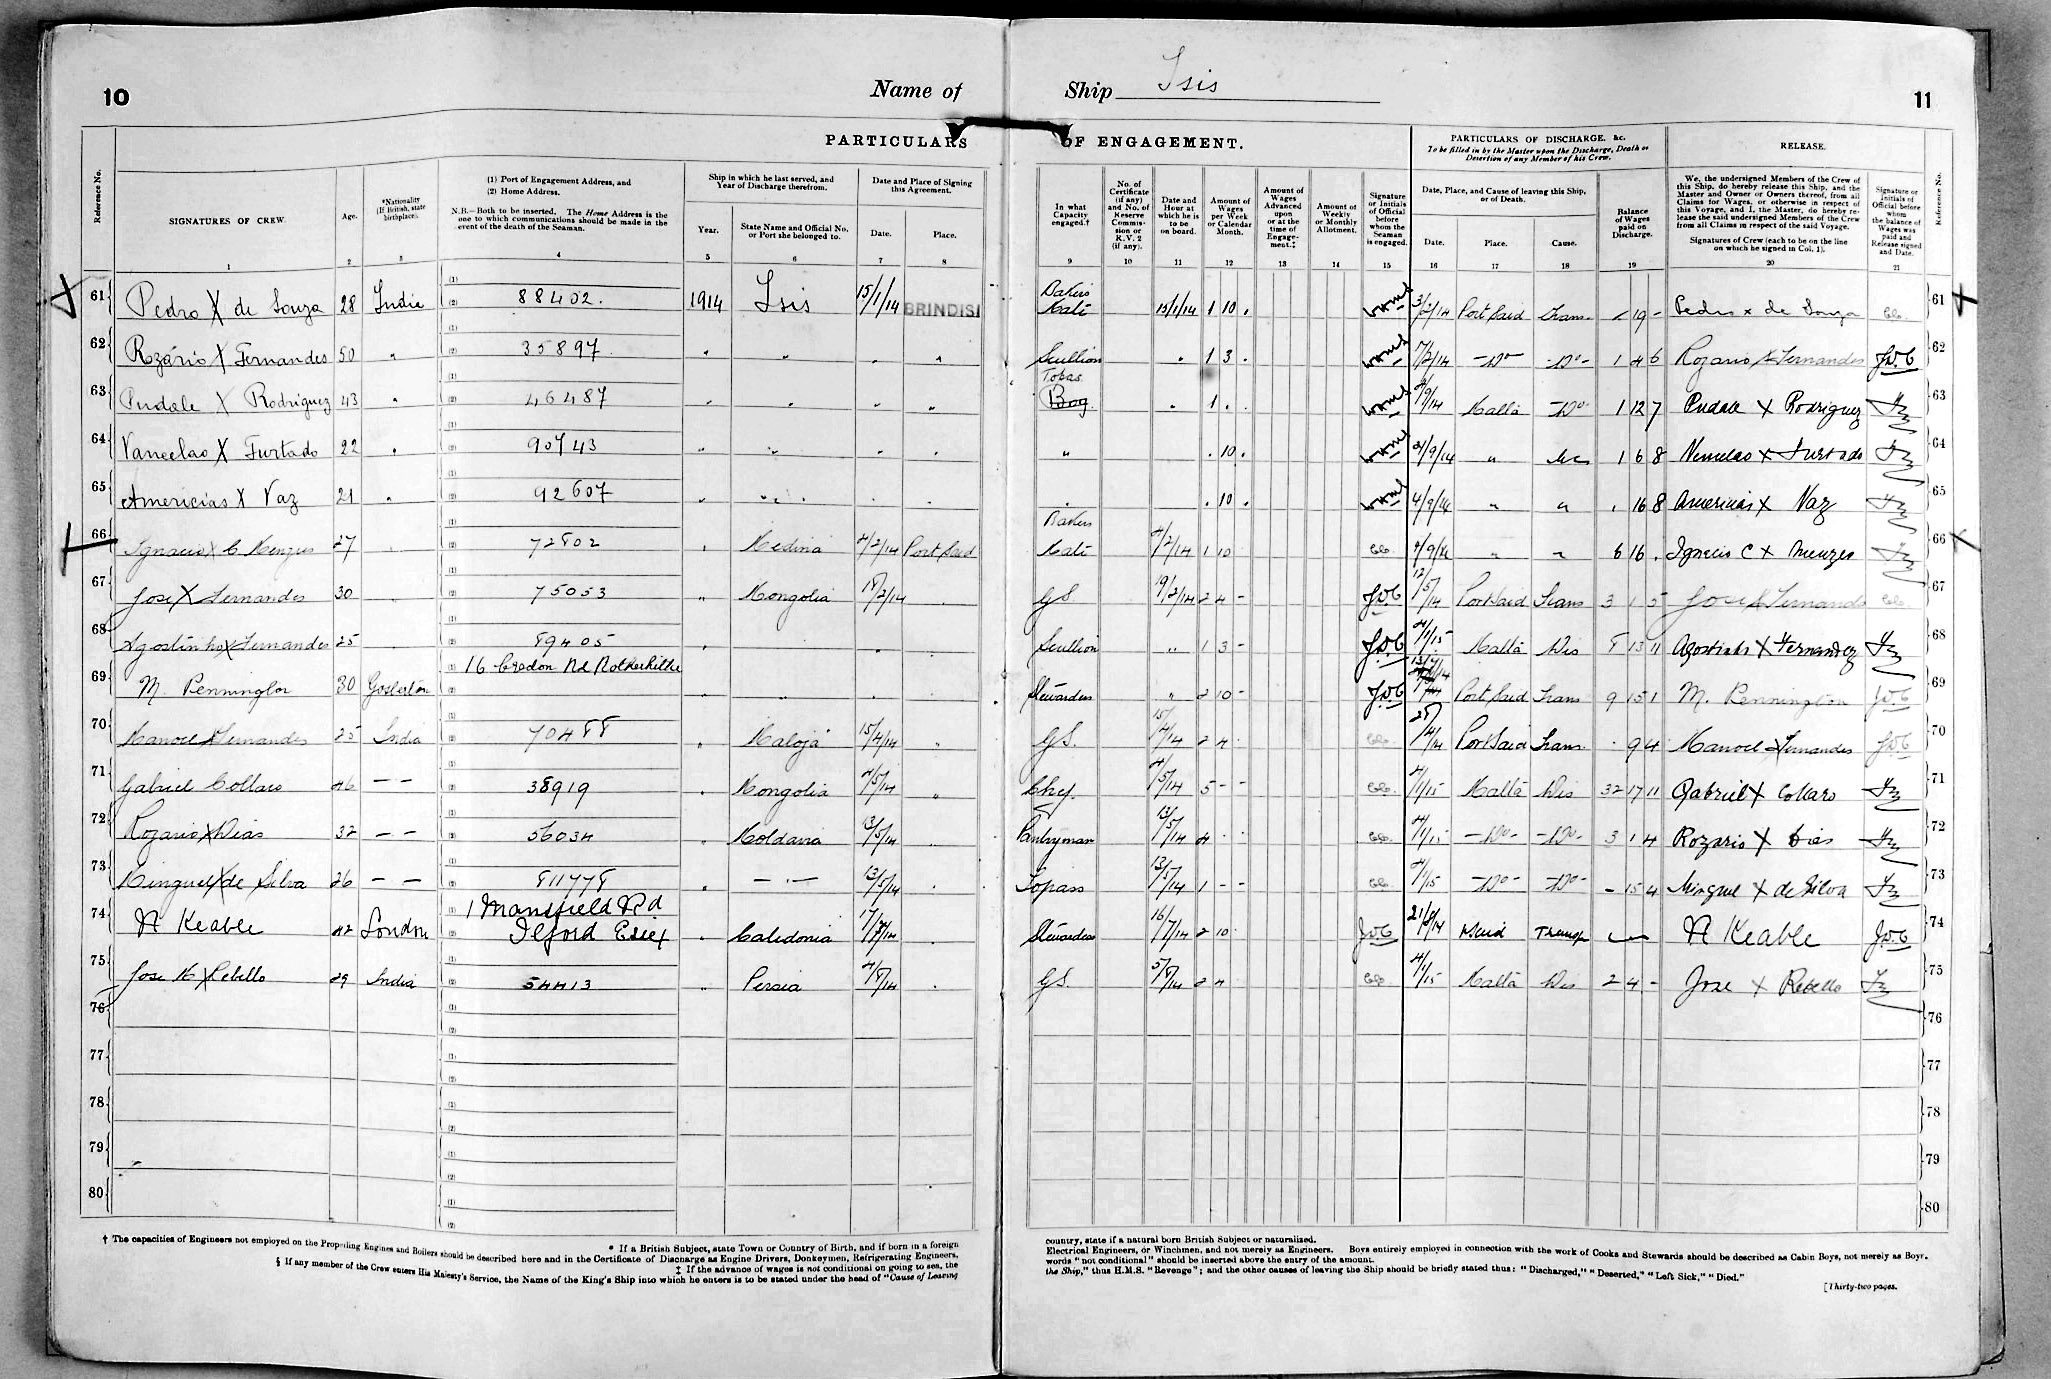 10
Name of
Ship Isis
11
PARTICULARS OF ENGAGEMENT.
PARTICULARS OF DISCHARGE. &c.
To be filled in by the Master upon the Discharge, Death or Desertion of any Member of his Crew.
RELEASE.
Reference No.
SIGNATURES OF CREW
Age.
*Nationality (If British, state birthplace).
(1) Port of Engagement Address, and
(2) Home Address.
N.B.—Both to be inserted. The Home Address is the one to which communications should be made in the event of the death of the Seaman.
Ship in which he last served, and Year of Discharge therefrom.
Year.
State Name and Official No. or Port she belonged to.
Date and Place of Signing this Agreement.
Date.
Place.
In what Capacity engaged.†
No. of Certificate (if any) and No. of Reserve Commission or R.V. 2 (if any).
Date and Hour at which he is to be on board.
Amount of Wages per Week or Calendar Month.
Amount of Wages Advanced upon or at the time of Engagement.‡
Amount of Weekly or Monthly Allotment.
Signature or Initials of Official before whom the Seaman is engaged.
Date, Place, and Cause of leaving this Ship, or of Death.
Date.
Place.
Cause.
Balance of Wages paid on Discharge.
We, the undersigned Members of the Crew of this Ship, do hereby release this Ship, and the Master and Owner or Owners thereof, from all Claims for Wages, or otherwise in respect of this Voyage, and I, the Master, do hereby release the said undersigned Members of the Crew from all Claims in respect of the said Voyage.
Signatures of Crew (each to be on the line on which he signed in Col. 1).
Signature or Initials of Official before whom the balance of Wages was paid and Release signed and Date.
Reference No.
1 2 3 4 5 6 7 8 9 10 11 12 13 14 15 16 17 18 19 20 21
61 Pedro X de Souza 28 India 88402. 1914 Isis 15/1/14 BRINDISI Bakers Mate 15/1/14 1 10 . 3/2/14 Port Said Trans - 19 - Pedro x de Souza 61
62 Rozario X Fernandes 50 " 35897 " " " " Scullion " 1 3 . 7/2/14 -Do- -Do- 1 4 6 Rozario X Fernandes J.D.C 62
63 X Rodriguez 43 " 46487 " " " " Topas Boy " 1 . . 4/9/14 Malta -Do- 1 12 7 X Rodriguez 63
64 X Furtado 22 " 90743 " " " " " . 10 . 4/9/14 " 1 6 8 x Furtado 64
65 Americias X Vaz 21 " 92607 " " " . 10 . 4/9/14 " " . 16 8 Americias X Vaz 65
66 Ignacio X C Menzes 27 72802 " Medina 4/2/14 Port Said Bakers Mate 4/2/14 1 10 4/9/14 " " 6 16 . Ignacio C x Menzes 66
67 Jose X Fernandes 30 75053 " Mongolia /2/14 G S 9/2/14 2 4 - J.D.C 12/5/14 Port Said Trans 3 1 5 Jose X Fernandes 67
68 Agostinho X Fernandes 25 89405 " Scullion " 1 3 - J.D.C 4/1/15 Malta Dis 8 13 11 Agostinho X Fernandez 68
69 M. Pennington 30 16 Credon Rd Rotherhithe " " " Stewardess " 2 10 - J.D.C Port Said Trans 9 15 1 M. Pennington J.D.C 69
70 Manoel X Fernandes 25 India 70488 " Maloja 15/4/14 " G S. 15/4/14 2 4 . 28/4/14 Port Said Trans . 9 4 Manoel X Fernandes J.D.C 70
71 Gabriel Collaco 46 — — 38919 " Mongolia 4/5/14 " Chef. 4/5/14 5 - - 4/1/15 Malta Dis 32 17 11 Gabriel X Collaco 71
72 Rozario X Dias 32 — — 56034 " Moldavia 13/5/14 Pantryman 13/5/14 4 . . 4/1/15 -Do- -Do- 3 1 4 Rozario X Dias 72
73 Minguel X de Silva 26 — — 811778 " — " — 13/5/14 Topass 13/5/14 1 - - 4/1/15 -Do- -Do- - 15 4 Minguel X de Silva 73
74 N Keable 42 London 1 Mansfield Rd Ilford Essex " Caledonia 17/7/14 Stewardess 16/7/14 2 10 J.D.C 21/8/14 Transf N Keable J.D.C 74
75 Jose X Rebello 29 India 54413 " Persia 4/8/14 G S. 5/8/14 2 4 4/1/15 Malta Dis 2 4 - Jose X Rebello 75
76 76
77 77
78 78
79 79
80 80
† The capacities of Engineers not employed on the Propelling Engines and Boilers should be described here and in the Certificate of Discharge as Engine Drivers, Donkeymen, Refrigerating Engineers,
Electrical Engineers, or Winchmen, and not merely as Engineers. Boys entirely employed in connection with the work of Cooks and Stewards should be described as Cabin Boys, not merely as Boys.
* If a British Subject, state Town or Country of Birth, and if born in a foreign
country, state if a natural born British Subject or naturalised.
‡ If the advance of wages is not conditional on going to sea, the
words "not conditional" should be inserted above the entry of the amount.
§ If any member of the Crew enters His Majesty's Service, the Name of the King's Ship into which he enters is to be stated under the head of "Cause of Leaving
the Ship," thus H.M.S. "Revenge"; and the other causes of leaving the Ship should be briefly stated thus: "Discharged," "Deserted," "Left Sick," "Died."
[Thirty-two pages.